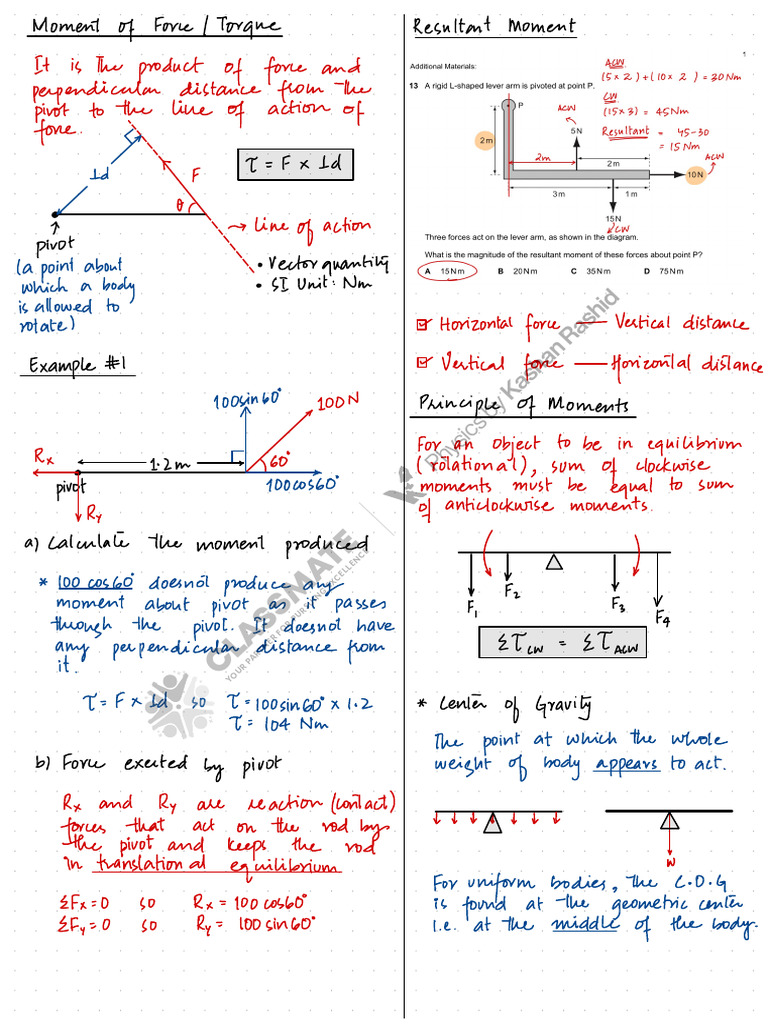 Moment of Force / Torque
It is the product of force and
perpendicular distance from the
pivot to the line of action of
force.
⊥d
F
θ
τ = F × ⊥d
→ Line of action
pivot
(a point about
which a body
is allowed to
rotate)
• Vector quantity
• SI Unit: Nm
Example #1
100sin60°
100N
Rx
1.2m
60°
pivot
100cos60°
Ry
a) Calculate the moment produced
* 100 cos60° doesnot produce any
moment about pivot as it passes
through the pivot. It doesnot have
any perpendicular distance from
it.
τ = F × ⊥d so τ = 100sin60° × 1.2
τ = 104 Nm
b) Force exerted by pivot
Rx and Ry are reaction (contact)
forces that act on the rod by
the pivot and keeps the rod
in translational equilibrium
ΣFx=0 so Rx = 100 cos60°
ΣFy=0 so Ry = 100 sin60°
Resultant Moment
1
Additional Materials:
13 A rigid L-shaped lever arm is pivoted at point P.
ACW
(5×2)+(10×2) = 30Nm
CW
(15×3) = 45Nm
Resultant = 45-30
= 15Nm
P
ACW
5N
2m
2m
2m
ACW
10N
3m
1m
15N
CW
Three forces act on the lever arm, as shown in the diagram.
What is the magnitude of the resultant moment of these forces about point P?
A 15Nm B 20Nm C 35Nm D 75Nm
Horizontal force — Vertical distance
Vertical force — Horizontal distance
Principle of Moments
For an object to be in equilibrium
(rotational), sum of clockwise
moments must be equal to sum
of anticlockwise moments.
F1
F2
F3
F4
Στcw = Στacw
* Center of Gravity
The point at which the whole
weight of body appears to act.
W
For uniform bodies, the C.O.G
is found at the geometric center
i.e. at the middle of the body.
CLASSMATE
YOUR PARTNER FOR PURSUING EXCELLENCE
Physics by Kashan Rashid